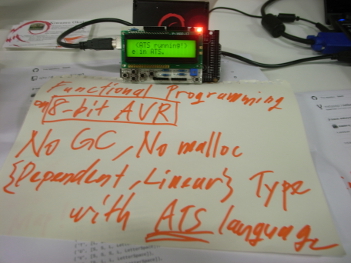 (ATS running!)
e in ATS.
Functional Programming
on 8-bit AVR
No GC, No malloc
{Dependent, Linear} Type
with ATS language